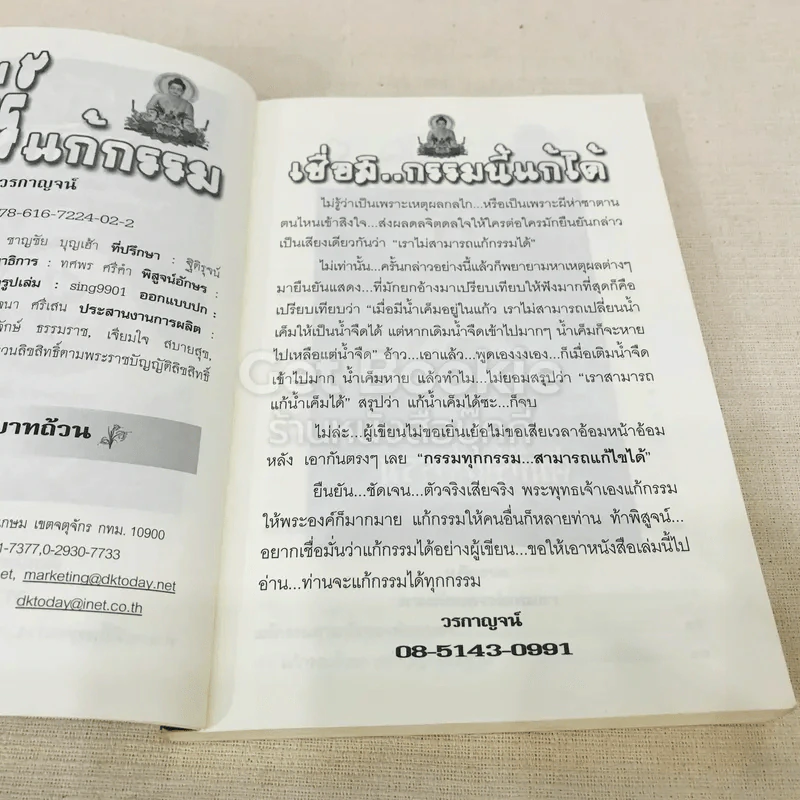 แก้กรรม
วรกาญจน์
78-616-7224-02-2
ชาญชัย บุญเฮ้า ที่ปรึกษา : ฐิติรุจน์
าธิการ : ทศพร ศรีคำ พิสูจน์อักษร :
รูปเล่ม : sing9901 ออกแบบปก :
นา ศรีเสน ประสานงานการผลิต :
ักษ์ ธรรมราช, เรียมใจ สบายสุข,
วนลิขสิทธิ์ตามพระราชบัญญัติลิขสิทธิ์
บาทถ้วน
กษม เขตจตุจักร กทม. 10900
1-7377,0-2930-7733
et, marketing@dktoday.net
dktoday@inet.co.th
เชื่อมิ..กรรมนี้แก้ได้
ไม่รู้ว่าเป็นเพราะเหตุผลกลไก...หรือเป็นเพราะผีห่าซาตาน
ตนไหนเข้าสิงใจ...ส่งผลดลจิตดลใจให้ใครต่อใครมักยืนยันกล่าว
เป็นเสียงเดียวกันว่า “เราไม่สามารถแก้กรรมได้”
ไม่เท่านั้น...ครั้นกล่าวอย่างนี้แล้วก็พยายามหาเหตุผลต่างๆ
มายืนยันแสดง...ที่มักยกอ้างมาเปรียบเทียบให้ฟังมากที่สุดก็คือ
เปรียบเทียบว่า “เมื่อมีน้ำเค็มอยู่ในแก้ว เราไม่สามารถเปลี่ยนน้ำ
เค็มให้เป็นน้ำจืดได้ แต่หากเติมน้ำจืดเข้าไปมากๆ น้ำเค็มก็จะหาย
ไปเหลือแต่น้ำจืด” อ้าว...เอาแล้ว...พูดเองงงเอง...ก็เมื่อเติมน้ำจืด
เข้าไปมาก น้ำเค็มหาย แล้วทำไม...ไม่ยอมสรุปว่า “เราสามารถ
แก้น้ำเค็มได้” สรุปว่า แก้น้ำเค็มได้ซะ...ก็จบ
ไม่ล่ะ...ผู้เขียนไม่ขอเยิ่นเย้อไม่ขอเสียเวลาอ้อมหน้าอ้อม
หลัง เอากันตรงๆ เลย “กรรมทุกกรรม...สามารถแก้ไขได้”
ยืนยัน...ชัดเจน...ตัวจริงเสียจริง พระพุทธเจ้าเองแก้กรรม
ให้พระองค์ก็มากมาย แก้กรรมให้คนอื่นก็หลายท่าน ท้าพิสูจน์...
อยากเชื่อมั่นว่าแก้กรรมได้อย่างผู้เขียน...ขอให้เอาหนังสือเล่มนี้ไป
อ่าน...ท่านจะแก้กรรมได้ทุกกรรม
วรกาญจน์
08-5143-0991